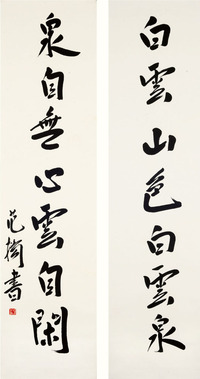 白雲山色白雲泉
泉自無心雲自閑
范樹書